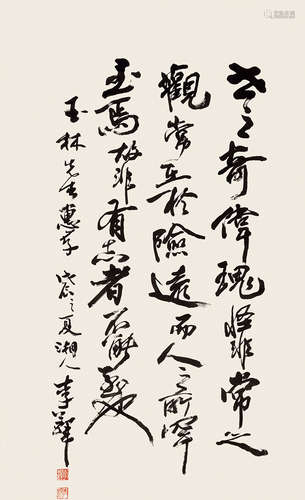 世之奇偉瑰怪非常之
觀常在於險遠而人之所罕
至焉故非有志者不能至也
玉林先生惠存 戊辰之夏湘人李鐸